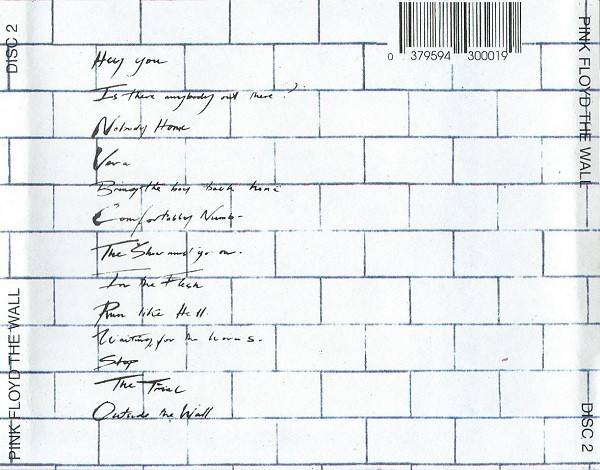 DISC 2
PINK FLOYD THE WALL
0 379594 300019
Hey you
Is there anybody out there?
Nobody Home
Vera
Bring the boys back home
Comfortably Numb
The Show must go on.
In the Flesh
Run like Hell.
Waiting for the worms.
Stop
The Trial
Outside the Wall
PINK FLOYD THE WALL
DISC 2